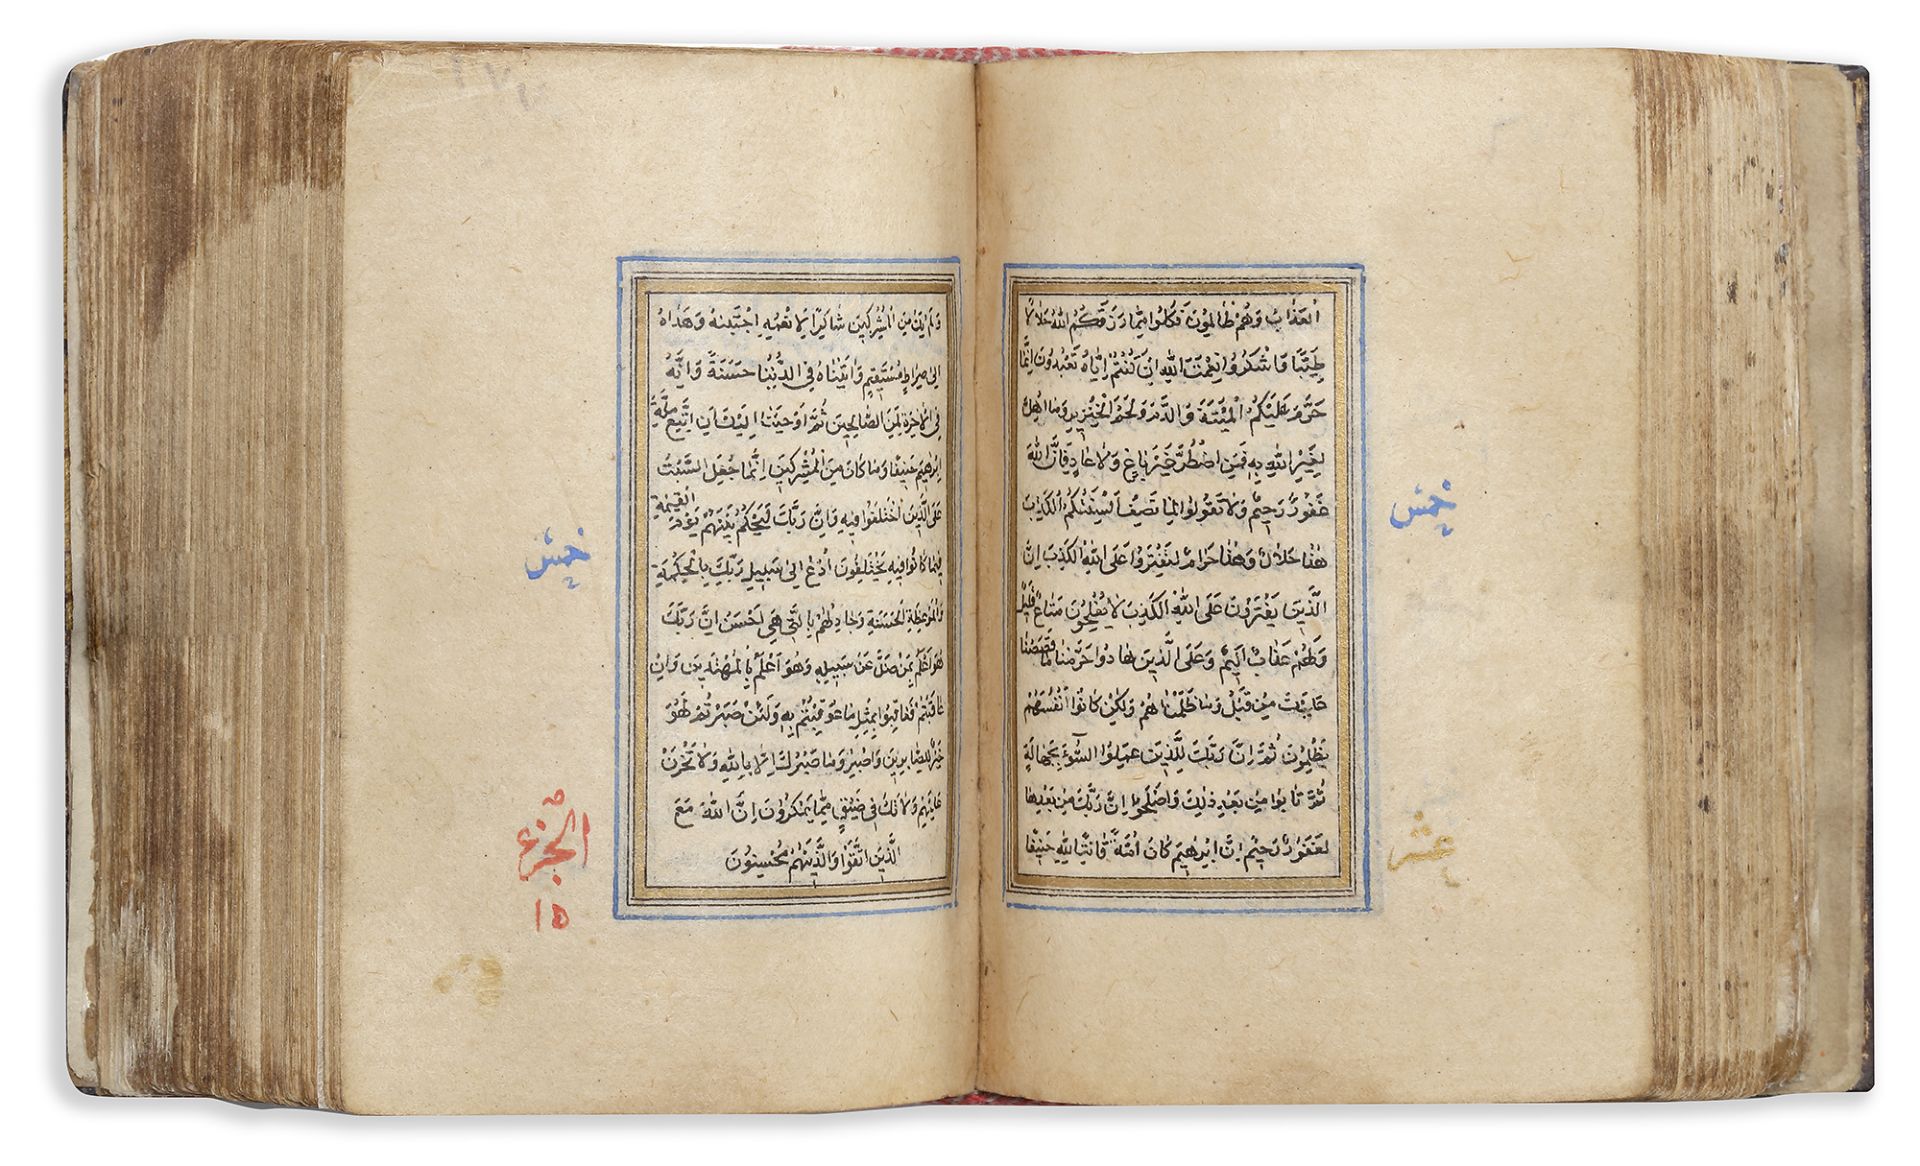 العَذَابُ وَهُمْ ظَالِمُونَ فَكُلُوا مِمَّا رَزَقَكُمُ اللهُ حَلَالًا
طَيِّبًا وَاشْكُرُوا نِعْمَتَ اللهِ اِنْ كُنْتُمْ اِيَّاهُ تَعْبُدُونَ اِنَّمَا
حَرَّمَ عَلَيْكُمُ الْمَيْتَةَ وَالدَّمَ وَلَحْمَ الْخِنْزِيرِ وَمَا اُهِلَّ
لِغَيْرِ اللهِ بِهِ فَمَنِ اضْطُرَّ غَيْرَ بَاغٍ وَلَا عَادٍ فَاِنَّ اللهَ
غَفُورٌ رَحِيمٌ وَلَا تَقُولُوا لِمَا تَصِفُ اَلْسِنَتُكُمُ الْكَذِبَ
هٰذَا حَلَالٌ وَهٰذَا حَرَامٌ لِتَفْتَرُوا عَلَى اللهِ الْكَذِبَ اِنَّ
الَّذِينَ يَفْتَرُونَ عَلَى اللهِ الْكَذِبَ لَا يُفْلِحُونَ مَتَاعٌ قَلِيلٌ
وَلَهُمْ عَذَابٌ اَلِيمٌ وَعَلَى الَّذِينَ هَادُوا حَرَّمْنَا مَا قَصَصْنَا
عَلَيْكَ مِنْ قَبْلُ وَمَا ظَلَمْنَاهُمْ وَلٰكِنْ كَانُوا اَنْفُسَهُمْ
يَظْلِمُونَ ثُمَّ اِنَّ رَبَّكَ لِلَّذِينَ عَمِلُوا السُّوٓءَ بِجَهَالَةٍ
ثُمَّ تَابُوا مِنْ بَعْدِ ذٰلِكَ وَاَصْلَحُوا اِنَّ رَبَّكَ مِنْ بَعْدِهَا
لَغَفُورٌ رَحِيمٌ اِنَّ اِبْرٰهِيمَ كَانَ اُمَّةً قَانِتًا لِلّٰهِ حَنِيفًا
خمس
عشر
وَلَمْ يَكُ مِنَ الْمُشْرِكِينَ شَاكِرًا لِاَنْعُمِهِ اجْتَبٰىهُ وَهَدَاهُ
اِلٰى صِرَاطٍ مُسْتَقِيمٍ وَاٰتَيْنَاهُ فِي الدُّنْيَا حَسَنَةً وَاِنَّهُ
فِي الْاٰخِرَةِ لَمِنَ الصَّالِحِينَ ثُمَّ اَوْحَيْنَا اِلَيْكَ اَنِ اتَّبِعْ مِلَّةَ
اِبْرٰهِيمَ حَنِيفًا وَمَا كَانَ مِنَ الْمُشْرِكِينَ اِنَّمَا جُعِلَ السَّبْتُ
عَلَى الَّذِينَ اخْتَلَفُوا فِيهِ وَاِنَّ رَبَّكَ لَيَحْكُمُ بَيْنَهُمْ يَوْمَ الْقِيٰمَةِ
فِيمَا كَانُوا فِيهِ يَخْتَلِفُونَ اُدْعُ اِلٰى سَبِيلِ رَبِّكَ بِالْحِكْمَةِ
وَالْمَوْعِظَةِ الْحَسَنَةِ وَجَادِلْهُمْ بِالَّتِي هِيَ اَحْسَنُ اِنَّ رَبَّكَ
هُوَ اَعْلَمُ بِمَنْ ضَلَّ عَنْ سَبِيلِهِ وَهُوَ اَعْلَمُ بِالْمُهْتَدِينَ وَاِنْ
عَاقَبْتُمْ فَعَاقِبُوا بِمِثْلِ مَا عُوقِبْتُمْ بِهِ وَلَئِنْ صَبَرْتُمْ لَهُوَ
خَيْرٌ لِلصَّابِرِينَ وَاصْبِرْ وَمَا صَبْرُكَ اِلَّا بِاللهِ وَلَا تَحْزَنْ
عَلَيْهِمْ وَلَا تَكُ فِي ضَيْقٍ مِمَّا يَمْكُرُونَ اِنَّ اللهَ مَعَ
الَّذِينَ اتَّقَوْا وَالَّذِينَ هُمْ مُحْسِنُونَ
خمس
الجزء
١٥